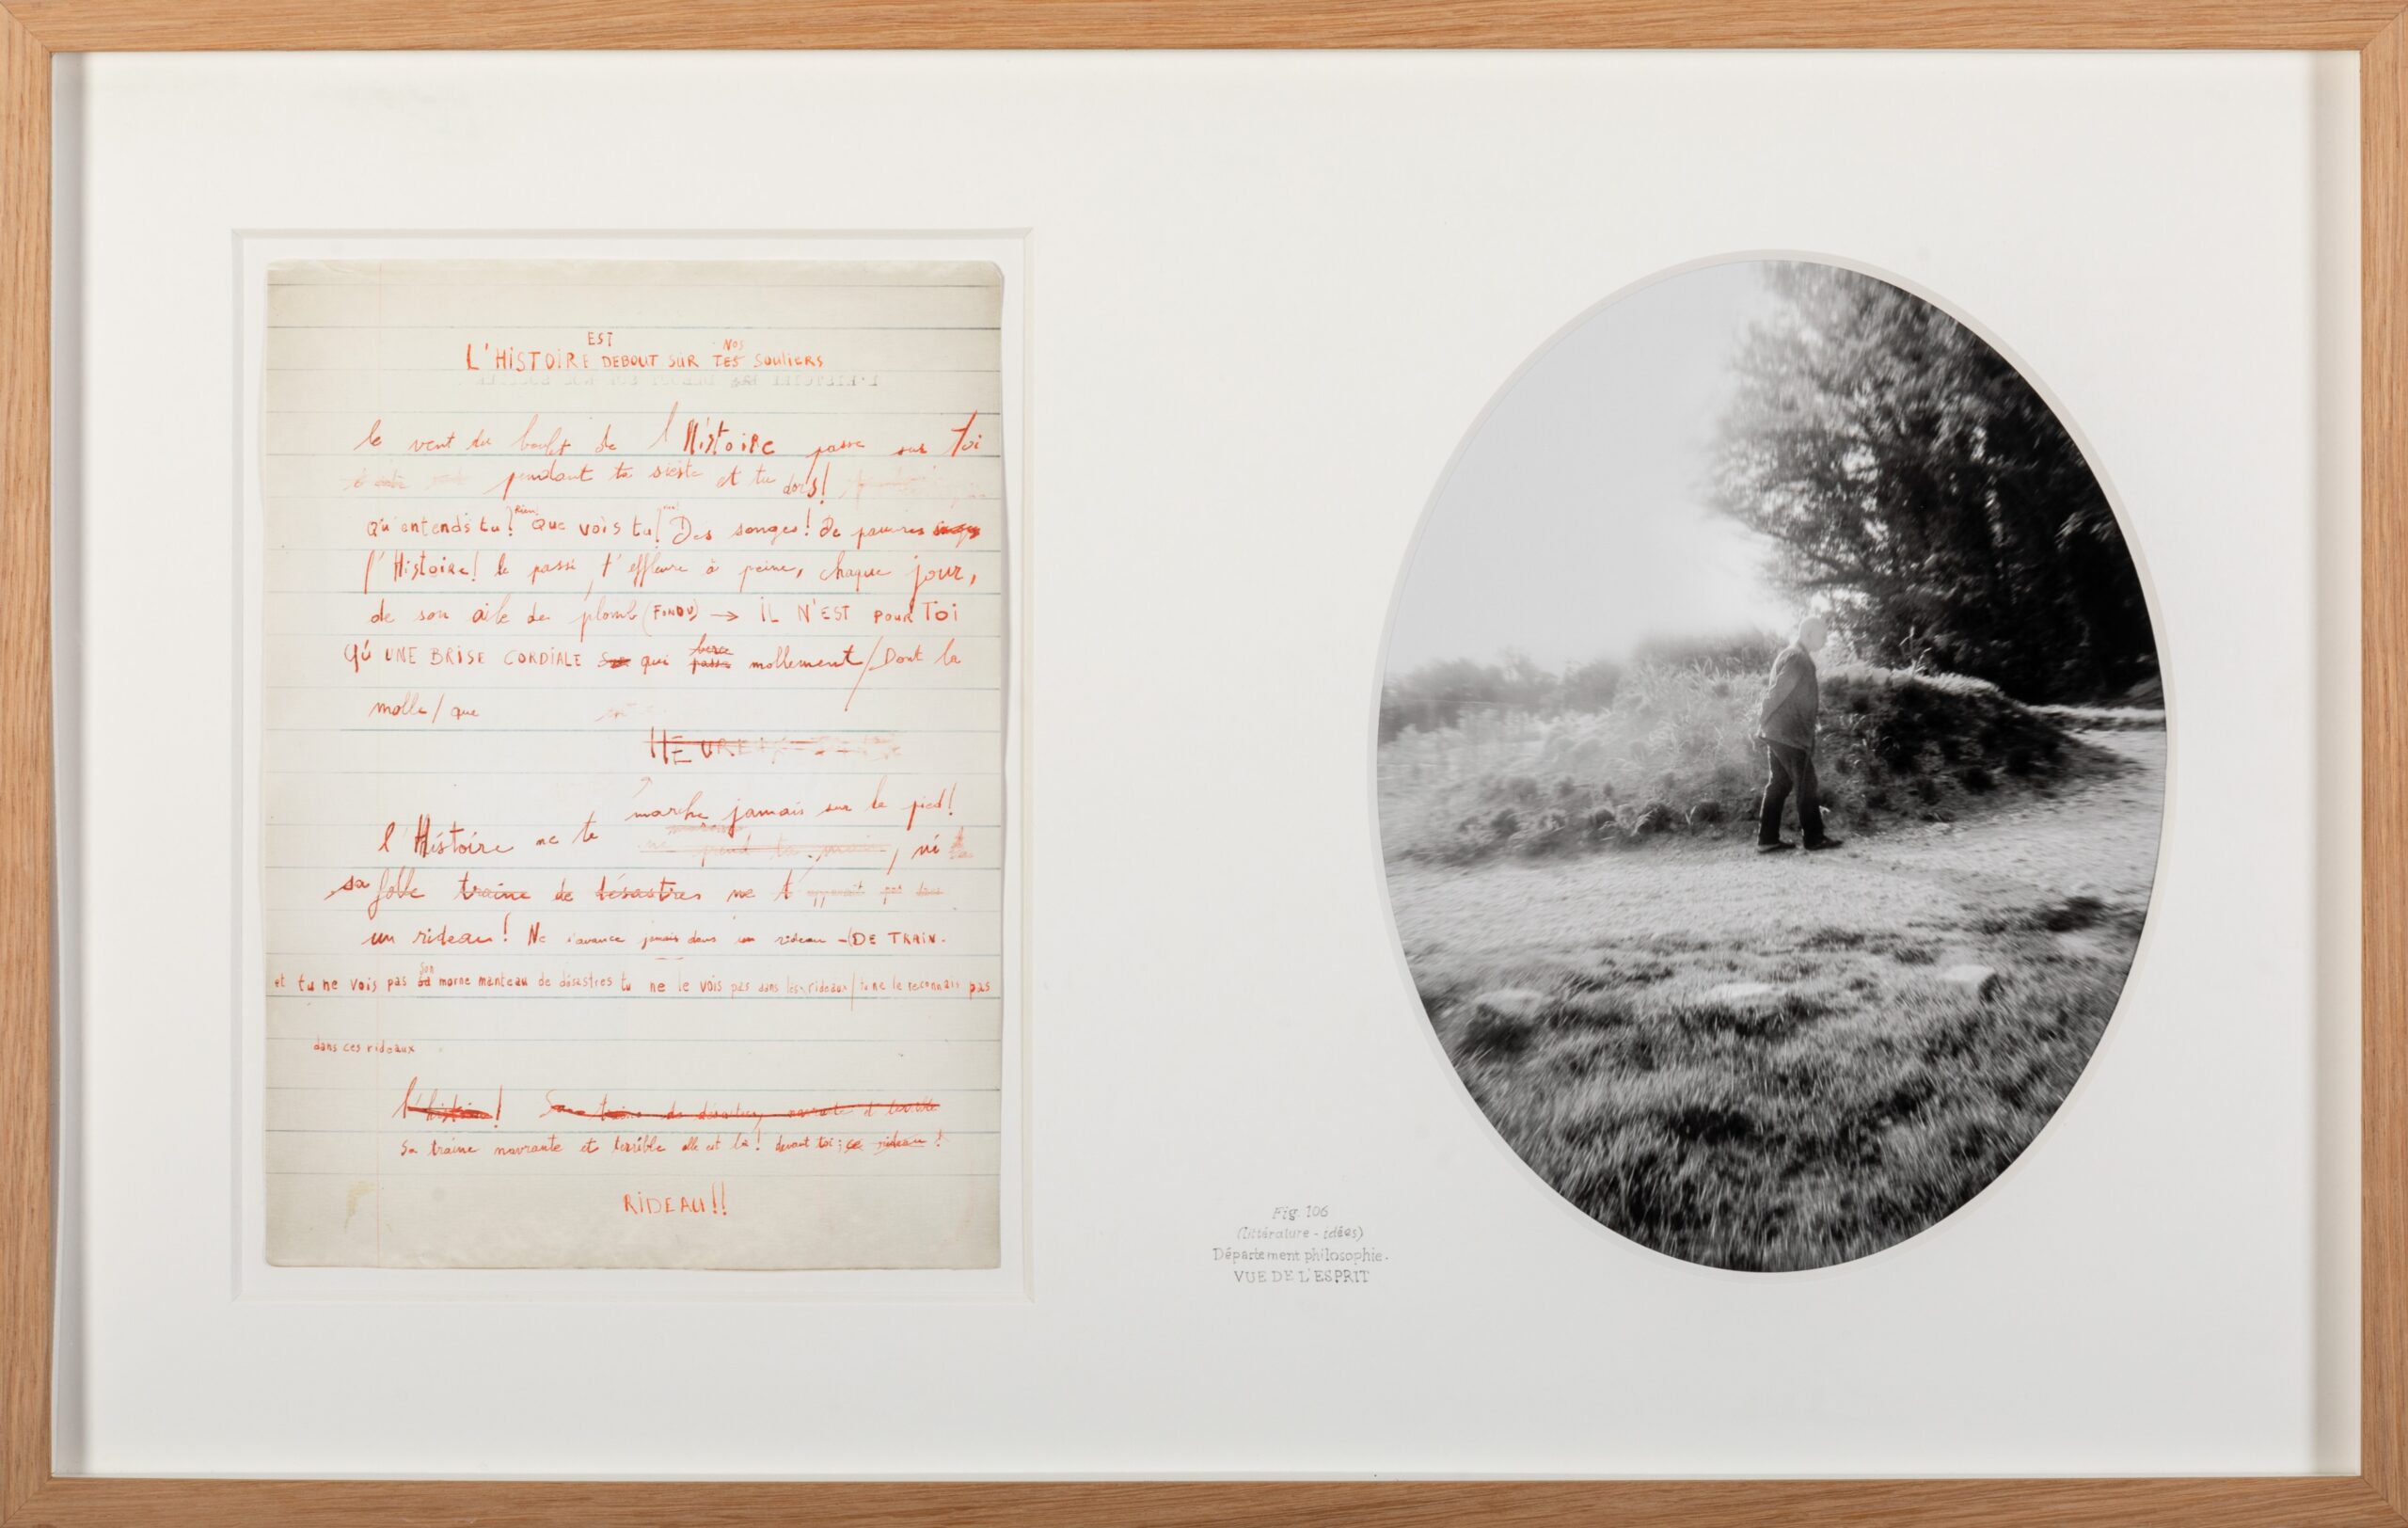 EST
L'HISTOIRE DEBOUT SUR TES NOS SOULIERS
le vent du boulet de l'Histoire passe sur Toi
pendant ta sieste et tu dors!
Qu'entends tu? Rien! Que vois tu! Des songes! De pauvres songes
l'Histoire! le passé, t'effleure à peine, chaque jour,
de son aile de plomb (FONDU) → IL N'EST POUR TOI
QU'UNE BRISE CORDIALE qui passe berce mollement / Dont la
molle / que
HEUREU
marche jamais sur le pied!
l'Histoire ne te
ne prend la main, ni
sa folle traine de désastres ne t' apparait pas dans
un rideau! Ne s'avance jamais dans un rideau - (DE TRAIN.
et tu ne vois pas son morne manteau de désastres tu ne le vois pas dans les rideaux / tu ne le reconnais pas
dans ces rideaux
l'histoire! Sa traine de désastres, navrante et terrible
Sa traine navrante et terrible elle est là! devant toi; ce rideau!
RIDEAU!!
Fig. 106
(littérature - idées)
Département philosophie.
VUE DE L'ESPRIT